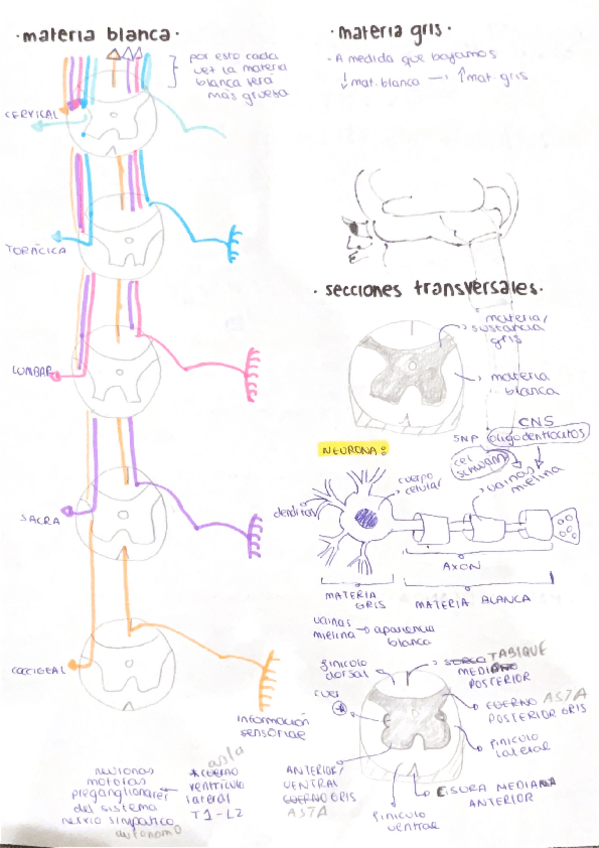 · materia blanca ·
por esto cada
vez la materia
blanca será
más gruesa
CERVICAL
TORÁCICA
LUMBAR
SACRA
COCCIGEAL
información
sensoriae
asta
* cuerno
ventrículo
lateral
T1-L2
neuronas
motoras
preganglionares
del sistema
nervio simpático
autónomo
· materia gris ·
- A medida que bajamos
↓ mat. blanca → ↑ mat. gris
· secciones transversales ·
materia/
sustancia
gris
materia
blanca
CNS
SNP oligodentrocitos
cel
schwann
vainas
mielina
NEURONA:
cuerpo
celular
dendritas
AXON
MATERIA
GRIS
MATERIA BLANCA
vainas
mielina → apariencia
blanca
finiculo
dorsal
SURCO TABIQUE
MEDIANO
POSTERIOR
cuer
*
CUERNO ASTA
POSTERIOR GRIS
finiculo
lateral
ANTERIOR/
VENTRAL
CUERNO GRIS
ASTA
FISURA MEDIANA
ANTERIOR
finiculo
ventrae